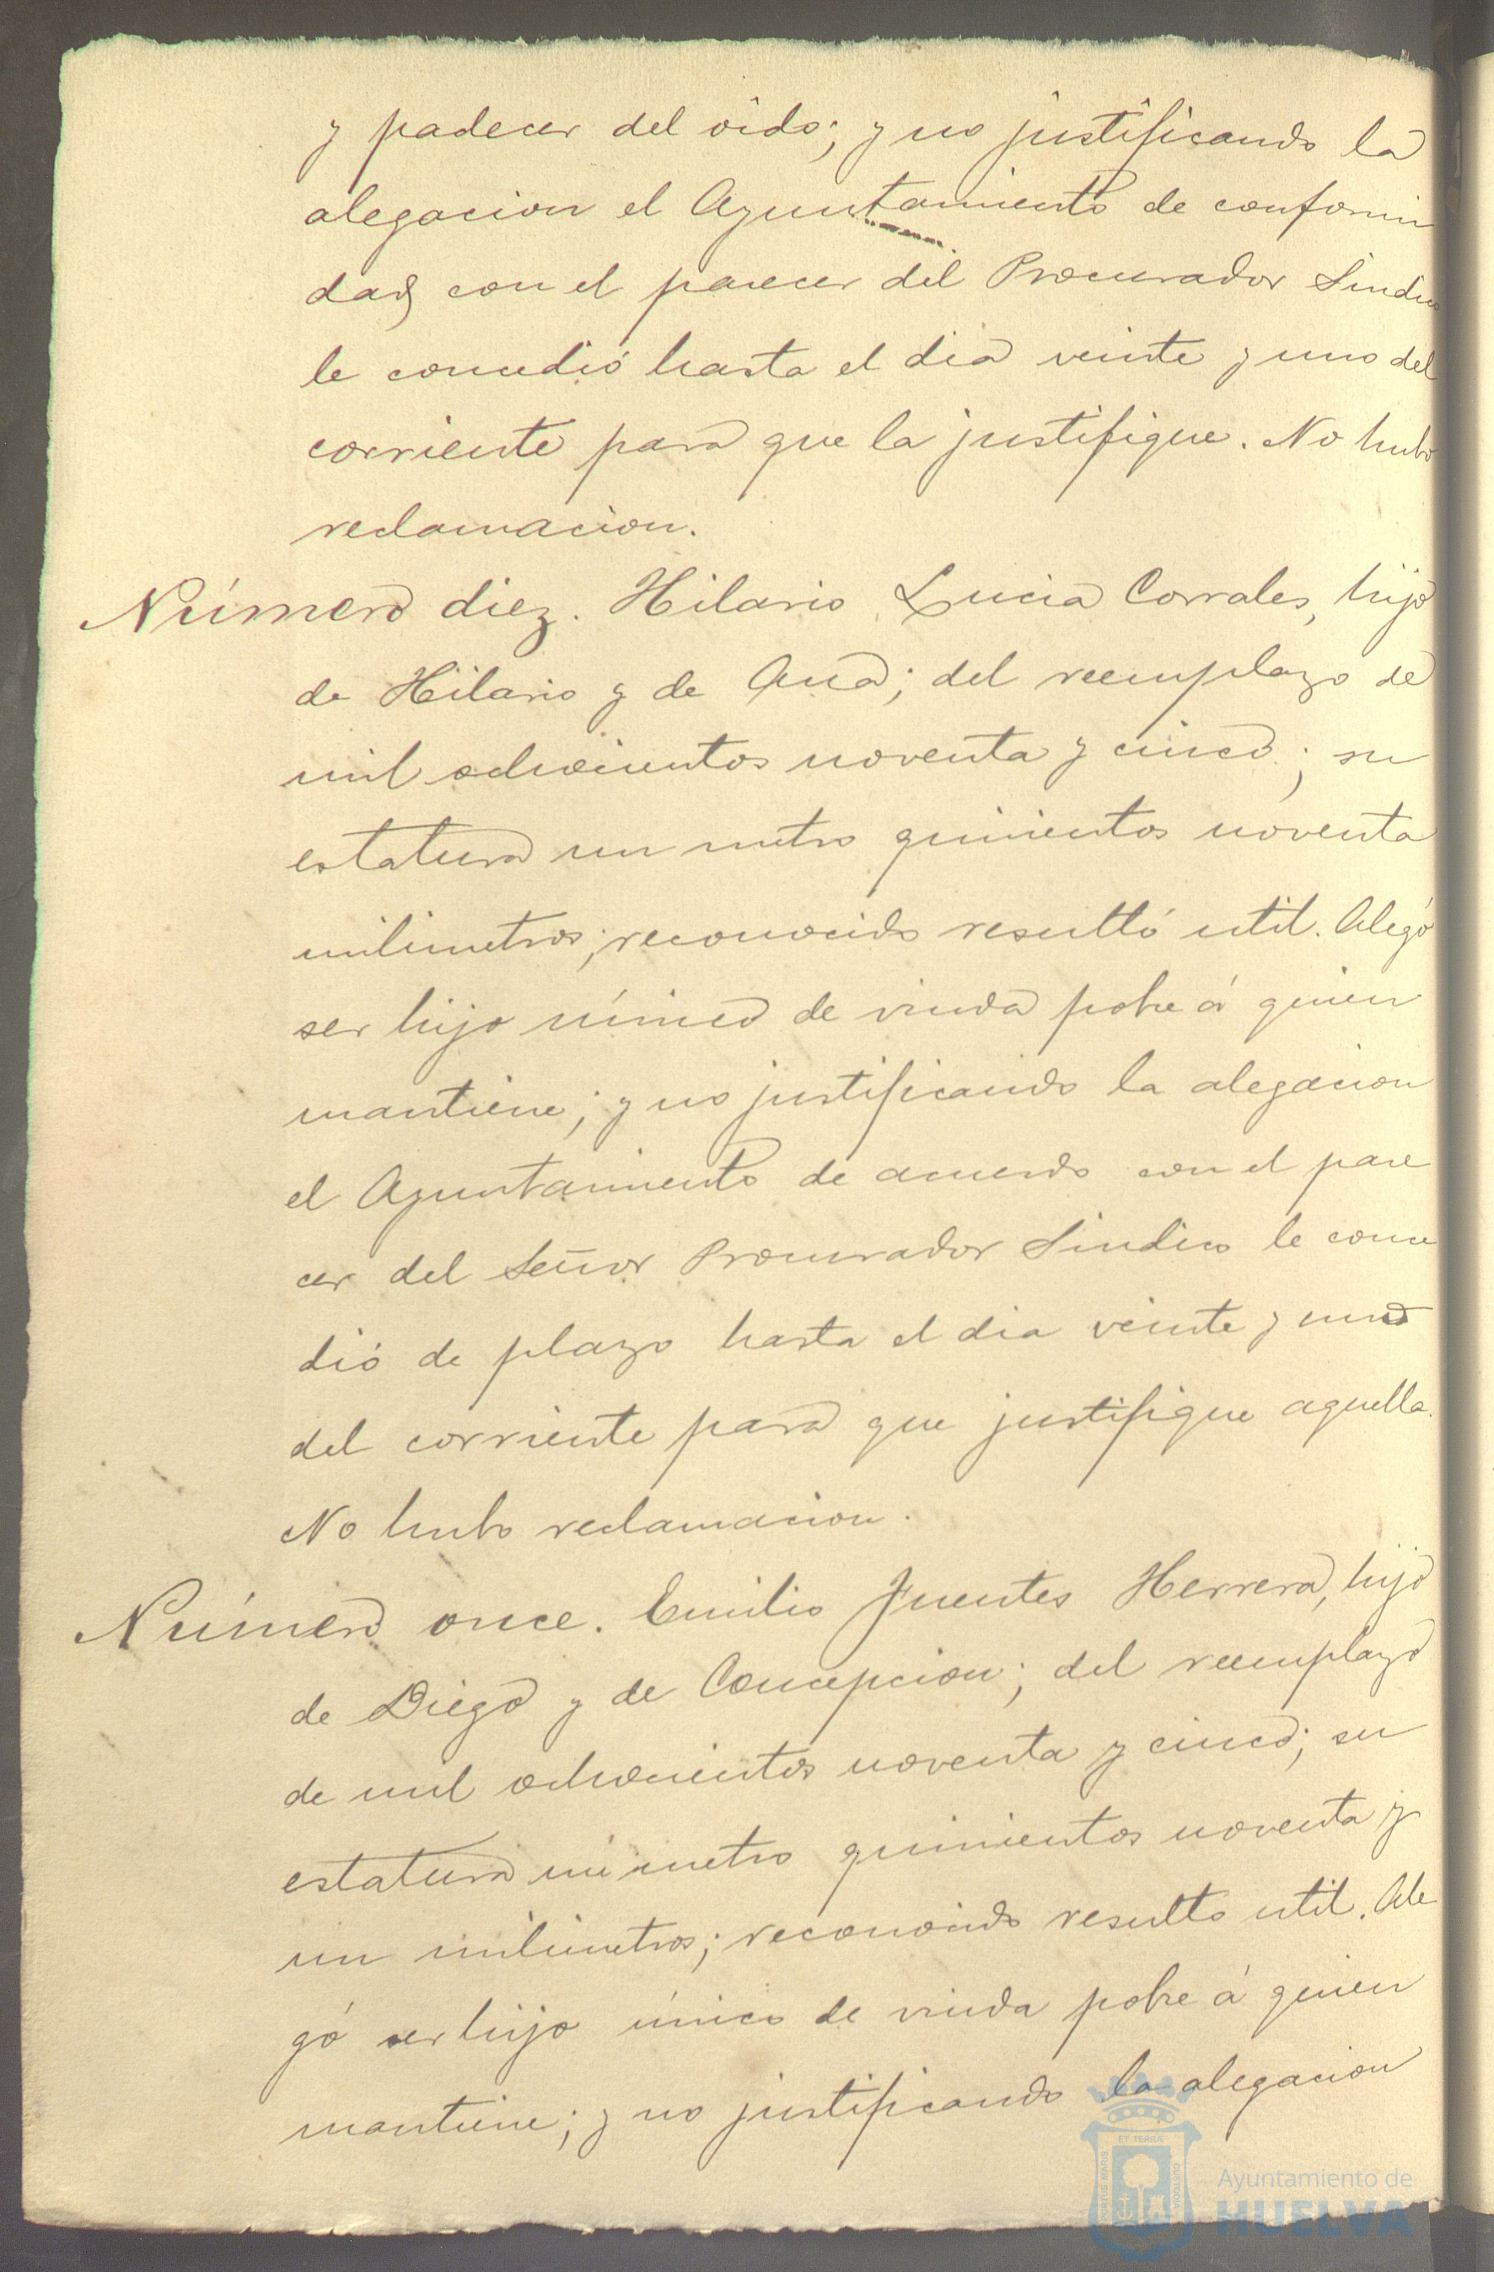 y padecer del oido; y no justificando la
alegacion el Ayuntamiento de conformi
dad con el parecer del Procurador Sindico
le concedió hasta el dia veinte y uno del
corriente para que la justifique. No hubo
reclamacion.
Número diez. Hilario Lucia Corrales, hijo
de Hilario y de Ana; del reemplazo de
mil ochocientos noventa y cinco; su
estatura un metro quinientos noventa
milimetros; reconocido resultó util. Alegó
ser hijo único de viuda pobre á quien
mantiene; y no justificando la alegacion
el Ayuntamiento de acuerdo con el pare
cer del Señor Procurador Sindico le conce
dió de plazo hasta el dia veinte y uno
del corriente para que justifique aquella.
No hubo reclamacion.
Número once. Emilio Fuentes Herrera, hijo
de Diego y de Concepcion; del reemplazo
de mil ochocientos noventa y cinco; su
estatura un metro quinientos noventa y
un milimetros; reconocido resulto util. Ale
gó ser hijo único de viuda pobre á quien
mantiene; y no justificando la alegacion
Ayuntamiento de
HUELVA